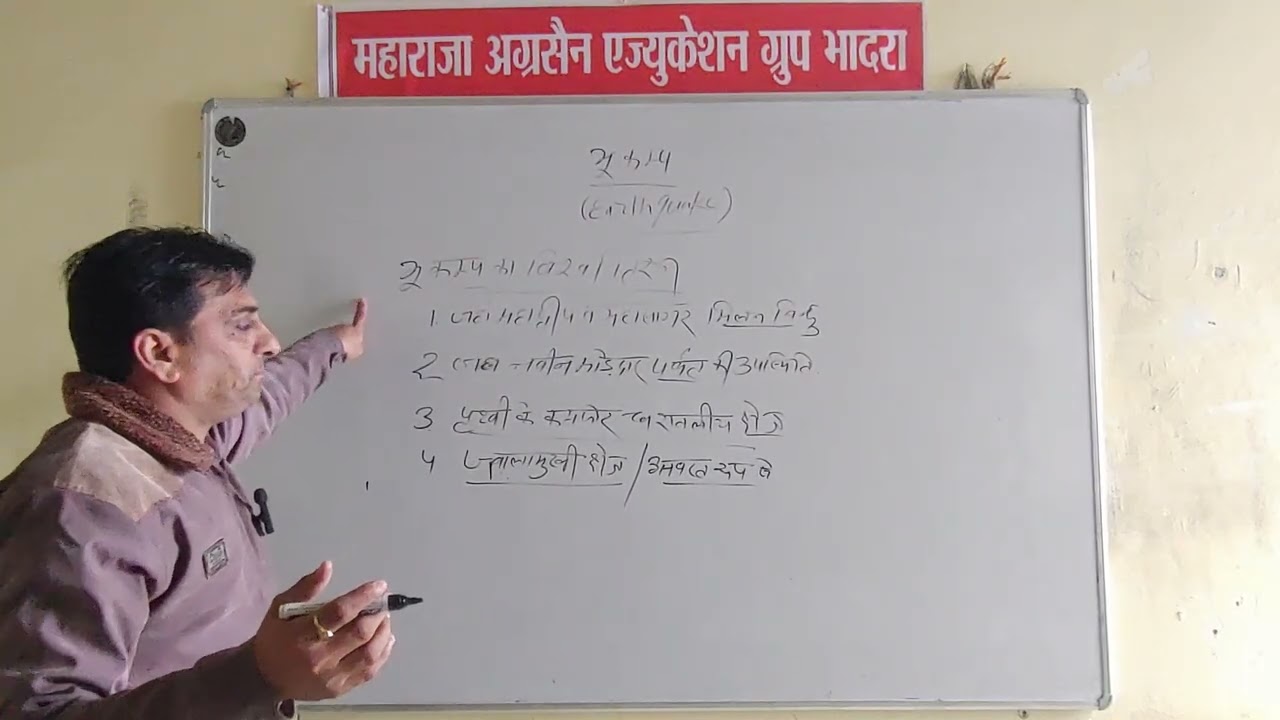 महाराजा अग्रसैन एज्युकेशन ग्रुप भादरा
भूकम्प
(Earthquake)
भूकम्प का विश्व वितरण
1. जहा महाद्वीप व महासागर मिलन बिन्दु
2 जहा नवीन मोड़दार पर्वत की उपस्थिति
3 पृथ्वी के कमजोर धरातलीय क्षेत्र
4 ज्वालामुखी क्षेत्र /